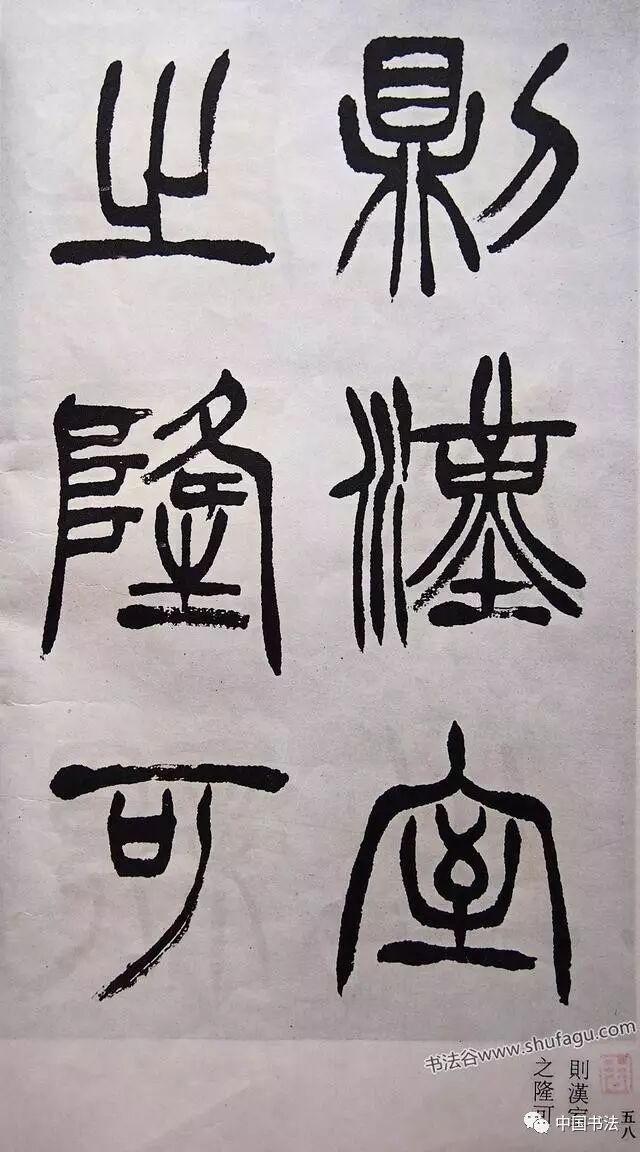 則漢室
之隆可
書法谷www.shufagu.com
則漢室
之隆可
五八
中国书法